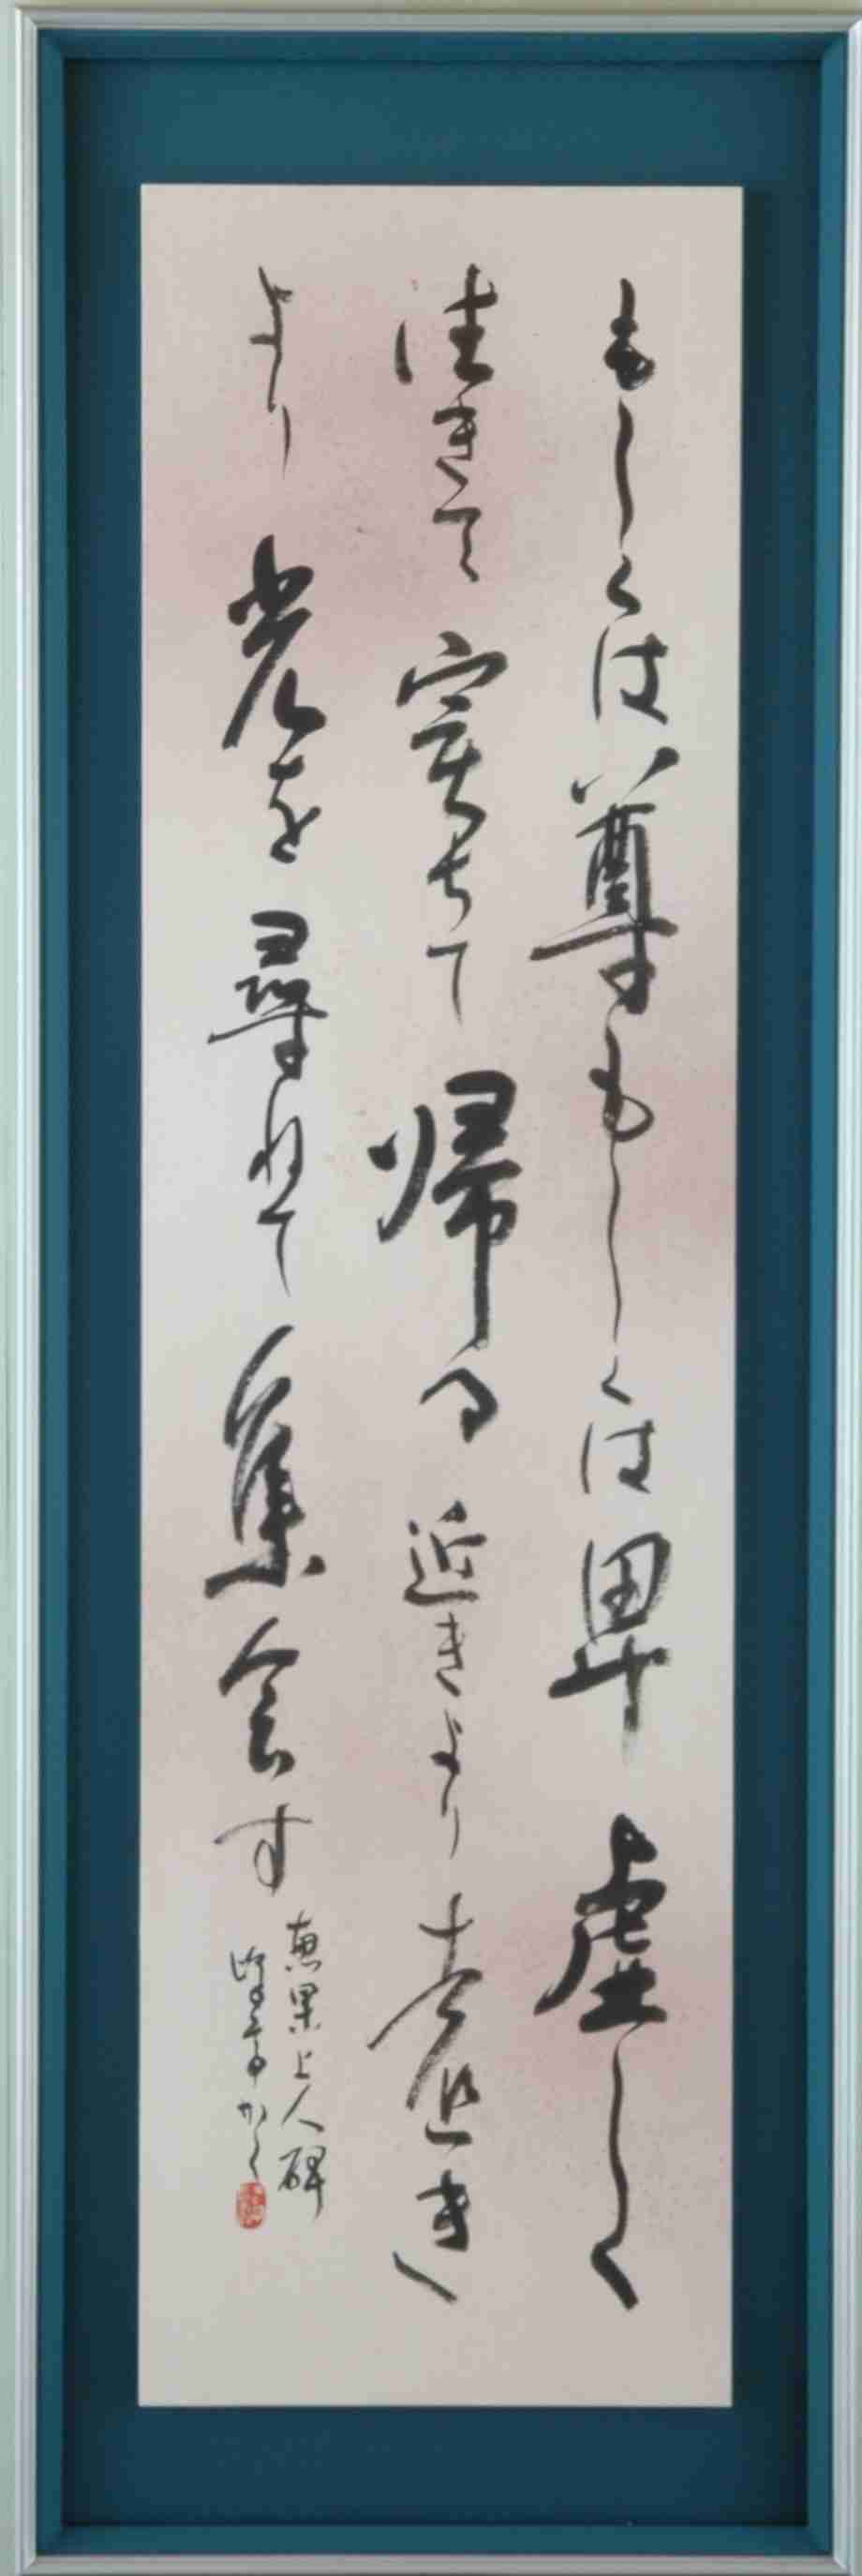 もしくは尊もしくは卑虚しく
往きて実ちて帰る近きより遠き
より光を尋ねて集会す
恵果上人碑
かく